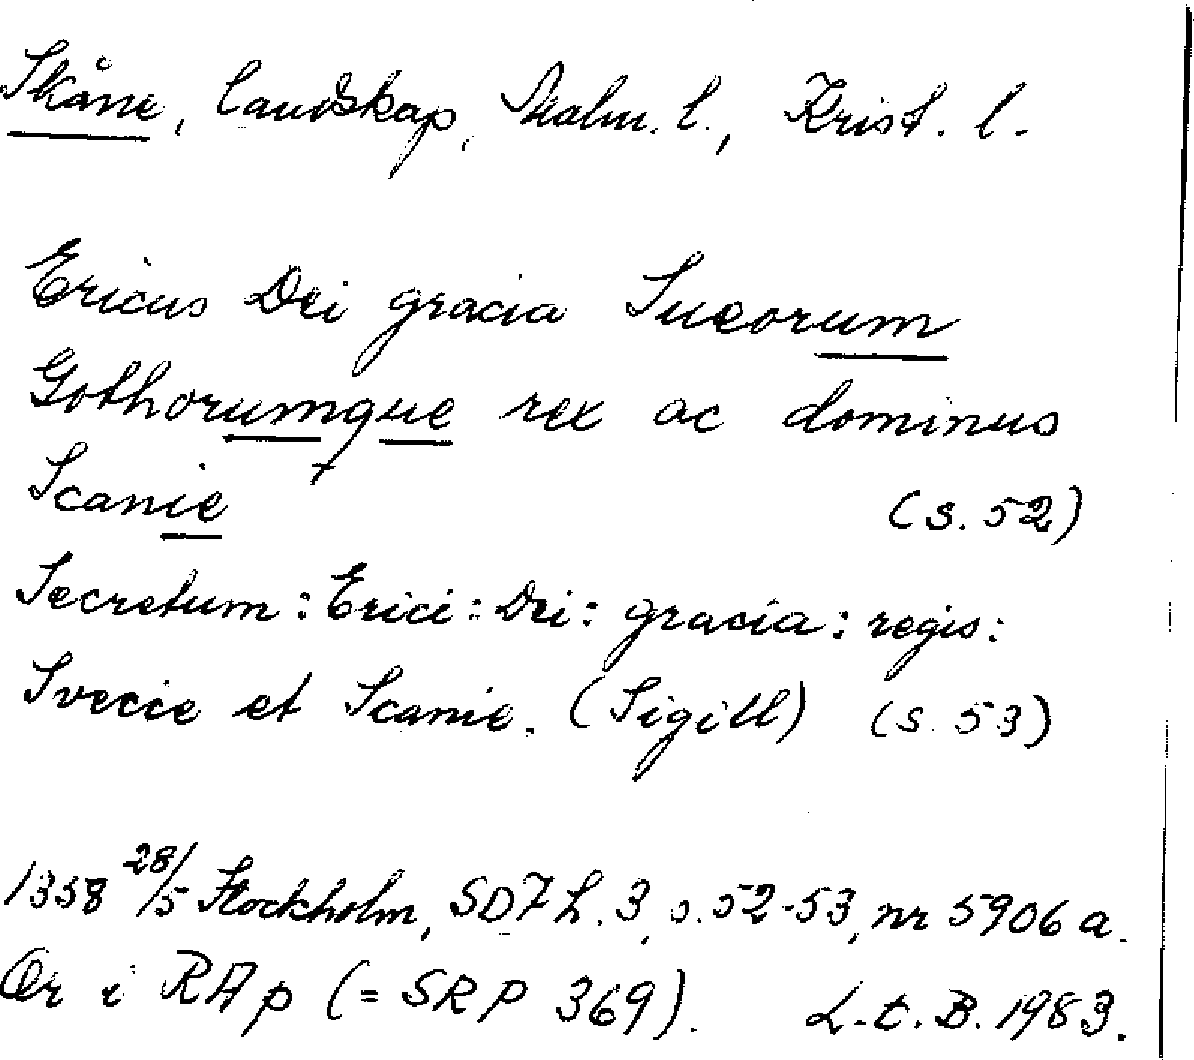 Skåne, landskap, Malm. l., Krist. l.
Ericus Dei gracia Sueorum
Gothorumque rex ac dominus
Scanie (s. 52)
Secretum : Erici : Dei : gracia : regis :
Svecie et Scanie. (Sigill) (s. 53)
1358 28/5 Stockholm, SD 7 h. 3, s. 52-53, nr 5906 a.
Or i RAp (= SRP 369). L-t. B. 1983.